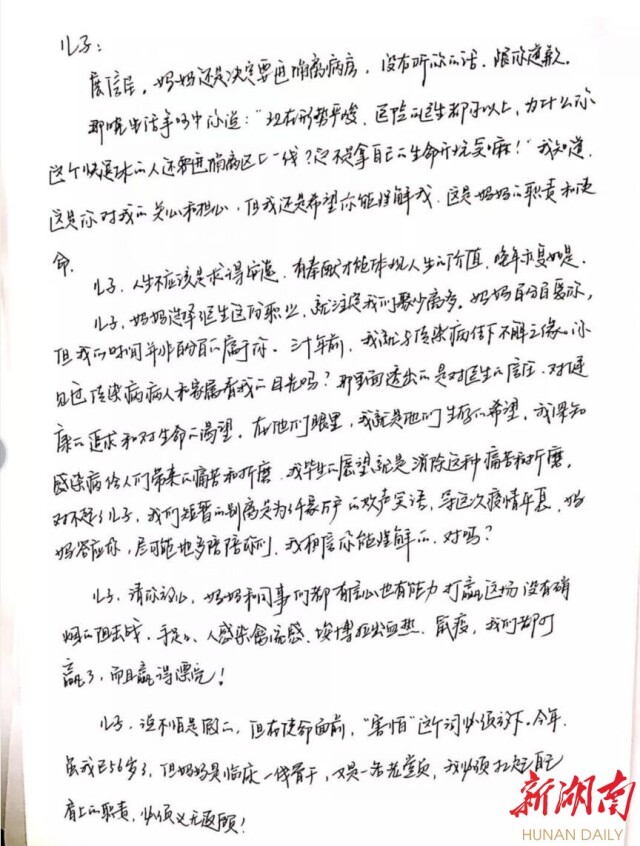 儿子：
展信后，妈妈还是决定要进隔离病房，没有听你的话，跟你道歉。
那晚生活事吵中你道：“现在形势严峻、医院的医生都可以上，为什么你
这个快退休的人还要进隔离区上一线？岂不是拿自己的生命开玩笑嘛！”我知道，
这是你对我的关心和担心，但我还是希望你能理解我，这是妈妈的职责和使
命。
儿子，人生不应该是求得安逸，有奉献才能体现人生的价值，晚年亦复如是。
儿子，妈妈选择医生这份职业，就注定我们聚少离多。妈妈百分百爱你，
但我的时间并非百分百属于你。三十年前，我就与传染病结下不解之缘。你
见过传染病病人和家属看我的目光吗？那里面透出的是对医生的信任、对健
康的追求和对生命的渴望。在他们眼里，我就是他们生存的希望，我深知
感染病给人们带来的痛苦和折磨，我毕生的愿望就是消除这种痛苦和折磨。
对不起了儿子，我们短暂的别离是为了千家万户的欢声笑语，等这次疫情平复，妈
妈答应你，尽可能地多陪陪你们，我相信你能理解的，对吗？
儿子，请你放心，妈妈和同事们都有信心也有能力打赢这场没有硝
烟的阻击战。手足口、人感染禽流感、埃博拉出血热、鼠疫，我们都可
赢了，而且赢得漂亮！
儿子，说不怕是假的，但在使命面前，“害怕”这个词必须放下。今年，
虽我已56岁了，但妈妈是临床一线骨干，又是一名老党员，我必须扛起自己
肩上的职责，必须义无返顾！
新湖南
HUNAN DAILY